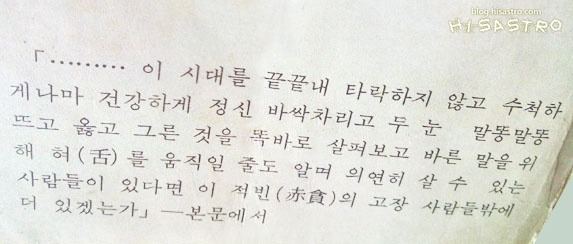 blog.hisastro.com
HISASTRO
「……… 이 시대를 끝끝내 타락하지 않고 수척하
게나마 건강하게 정신 바싹차리고 두 눈 말똥말똥
뜨고 옳고 그른 것을 똑바로 살펴보고 바른 말을 위
해 혀(舌)를 움직일 줄도 알며 의연히 살 수 있는
사람들이 있다면 이 적빈(赤貧)의 고장 사람들밖에
더 있겠는가」—본문에서